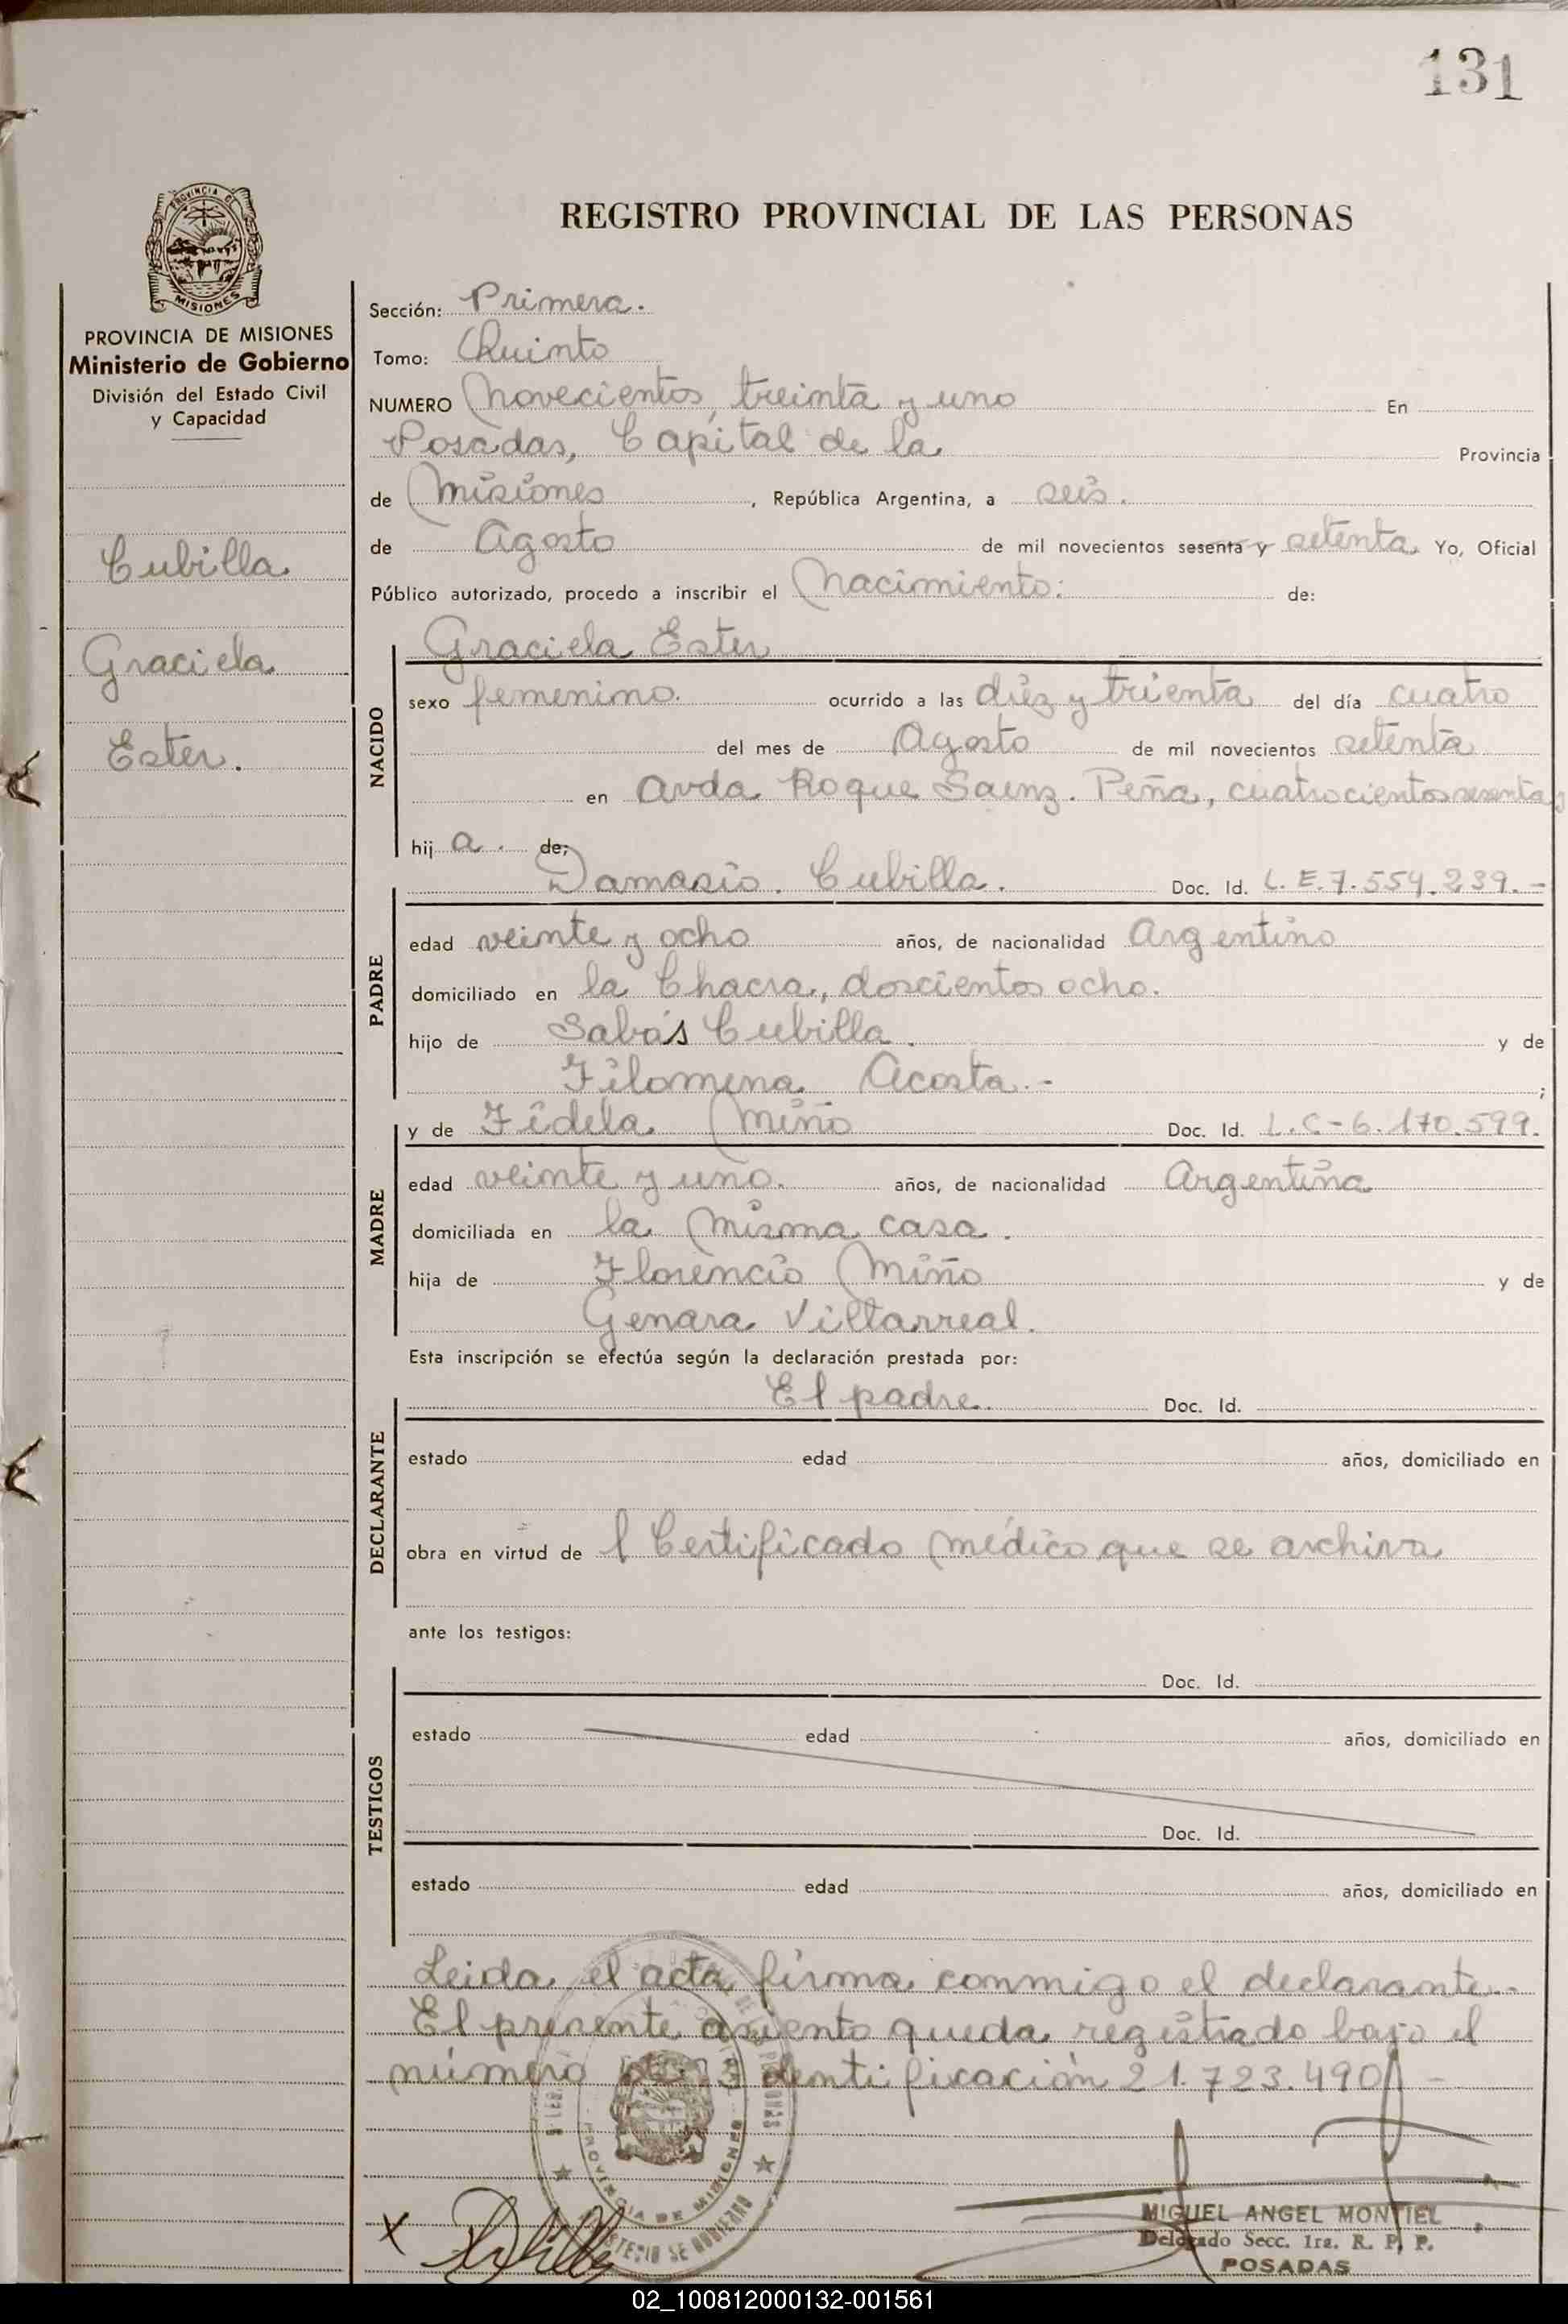 131
REGISTRO PROVINCIAL DE LAS PERSONAS
PROVINCIA DE
MISIONES
PROVINCIA DE MISIONES
Ministerio de Gobierno
División del Estado Civil
y Capacidad
Cubilla
Graciela
Ester.
Sección: Primera.
Tomo: Quinto
NUMERO Novecientos treinta y uno En
Posadas, Capital de la Provincia
de Misiones, República Argentina, a seis.
de Agosto de mil novecientos sesenta y setenta Yo, Oficial
Público autorizado, procedo a inscribir el Nacimiento: de:
NACIDO
Graciela Ester
sexo femenino. ocurrido a las diez y trienta del día cuatro
del mes de Agosto de mil novecientos setenta
en Avda Roque Saenz. Peña, cuatrocientos sesenta
hij a. de;
PADRE
Damasio. Cubilla. Doc. Id. L.E.7.554.239.-
edad veinte y ocho años, de nacionalidad Argentino
domiciliado en la Chacra, doscientos ocho.
hijo de Sabás Cubilla. y de
Filomena Acosta.- ;
MADRE
y de Fidela Miño Doc. Id. L.C-6.170.599.
edad veinte y uno. años, de nacionalidad Argentina
domiciliada en la misma casa.
hija de Florencio Miño y de
Genara Villarreal.
Esta inscripción se efectúa según la declaración prestada por:
DECLARANTE
El padre. Doc. Id.
estado edad años, domiciliado en
obra en virtud de l Certificado médico que se archiva
ante los testigos:
TESTIGOS
Doc. Id.
estado edad años, domiciliado en
Doc. Id.
estado edad años, domiciliado en
Leida el acta firma conmigo el declarante.-
El presente asiento queda registrado bajo el
número de identificación 21.723.490 -
PROVINCIA DE MISIONES
X
MIGUEL ANGEL MONTIEL
Delegado Secc. 1ra. R. P. P.
POSADAS
02_100812000132-001561